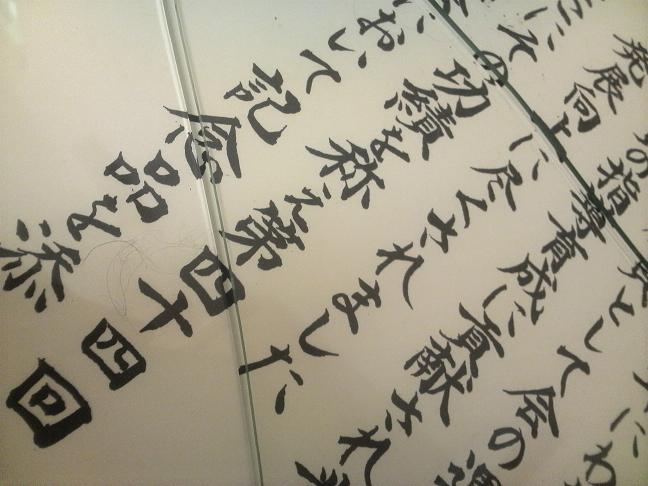 にわ
として会の運
の指導育成に貢献されま
発展向上に尽くされました
にその功績を称え第四十四回
おいて記念品を添